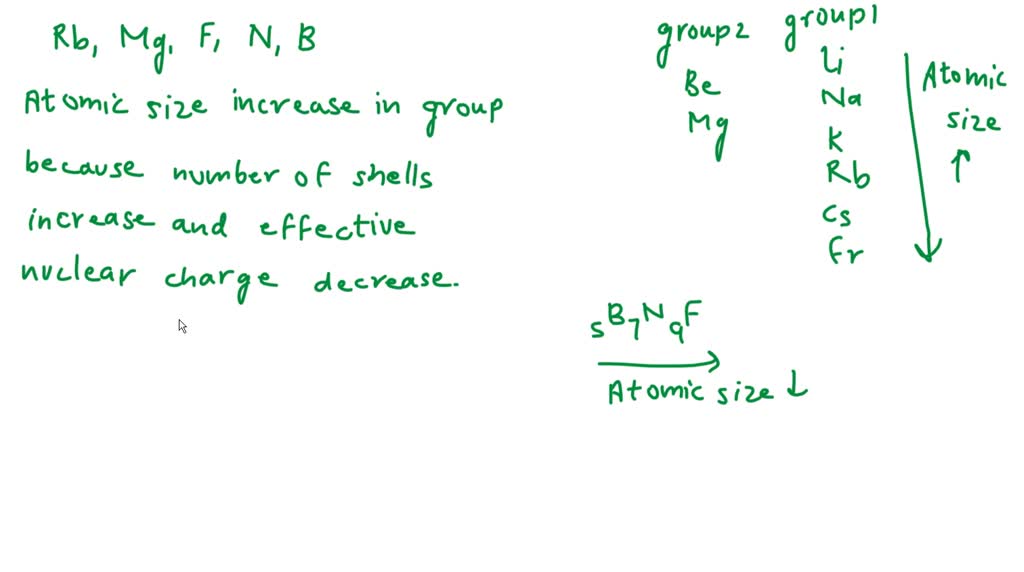 Rb, Mg, F, N, B
Atomic size increase in group
because number of shells
increase and effective
nuclear charge decrease.
group2 group1
Be
Mg
Li
Na
K
Rb
Cs
Fr
Atomic
size
↑
5B 7N 9F
Atomic size ↓